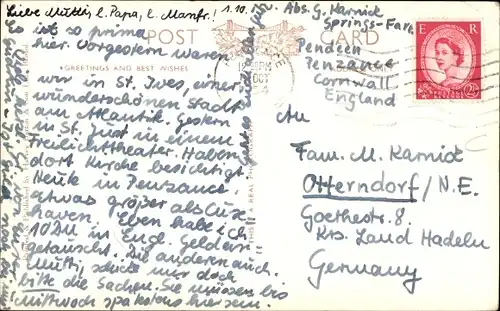 Liebe Mutti, l. Papa, l. Manfr.! 1.10.
Es ist so prima
hier. Vorgestern waren
wir in St. Ives, einer
wunderschönen Stadt
am Atlantik. Gestern
in St. Just in einem
Freilichttheater. Haben
dort Kirche besichtigt.
Heute in Penzance.
etwas größer als Cux
haven. Eben habe ich
10 DM in Engl. Geldern
getauscht. Die anderen auch.
Mutti, schicke mir doch
bitte die Sachen. Sie müssen bis
Mittwoch spätestens hier sein.
POST CARD
GREETINGS AND BEST WISHES
Abs. G. Karnick
Springs-Farm
Pendeen
Penzance
Cornwall
England
E R
POSTAGE REVENUE
2½D
OCT
An
Fam. M. Karnick
Otterndorf/N.E.
Goethestr. 8
Krs. Land Hadeln
Germany